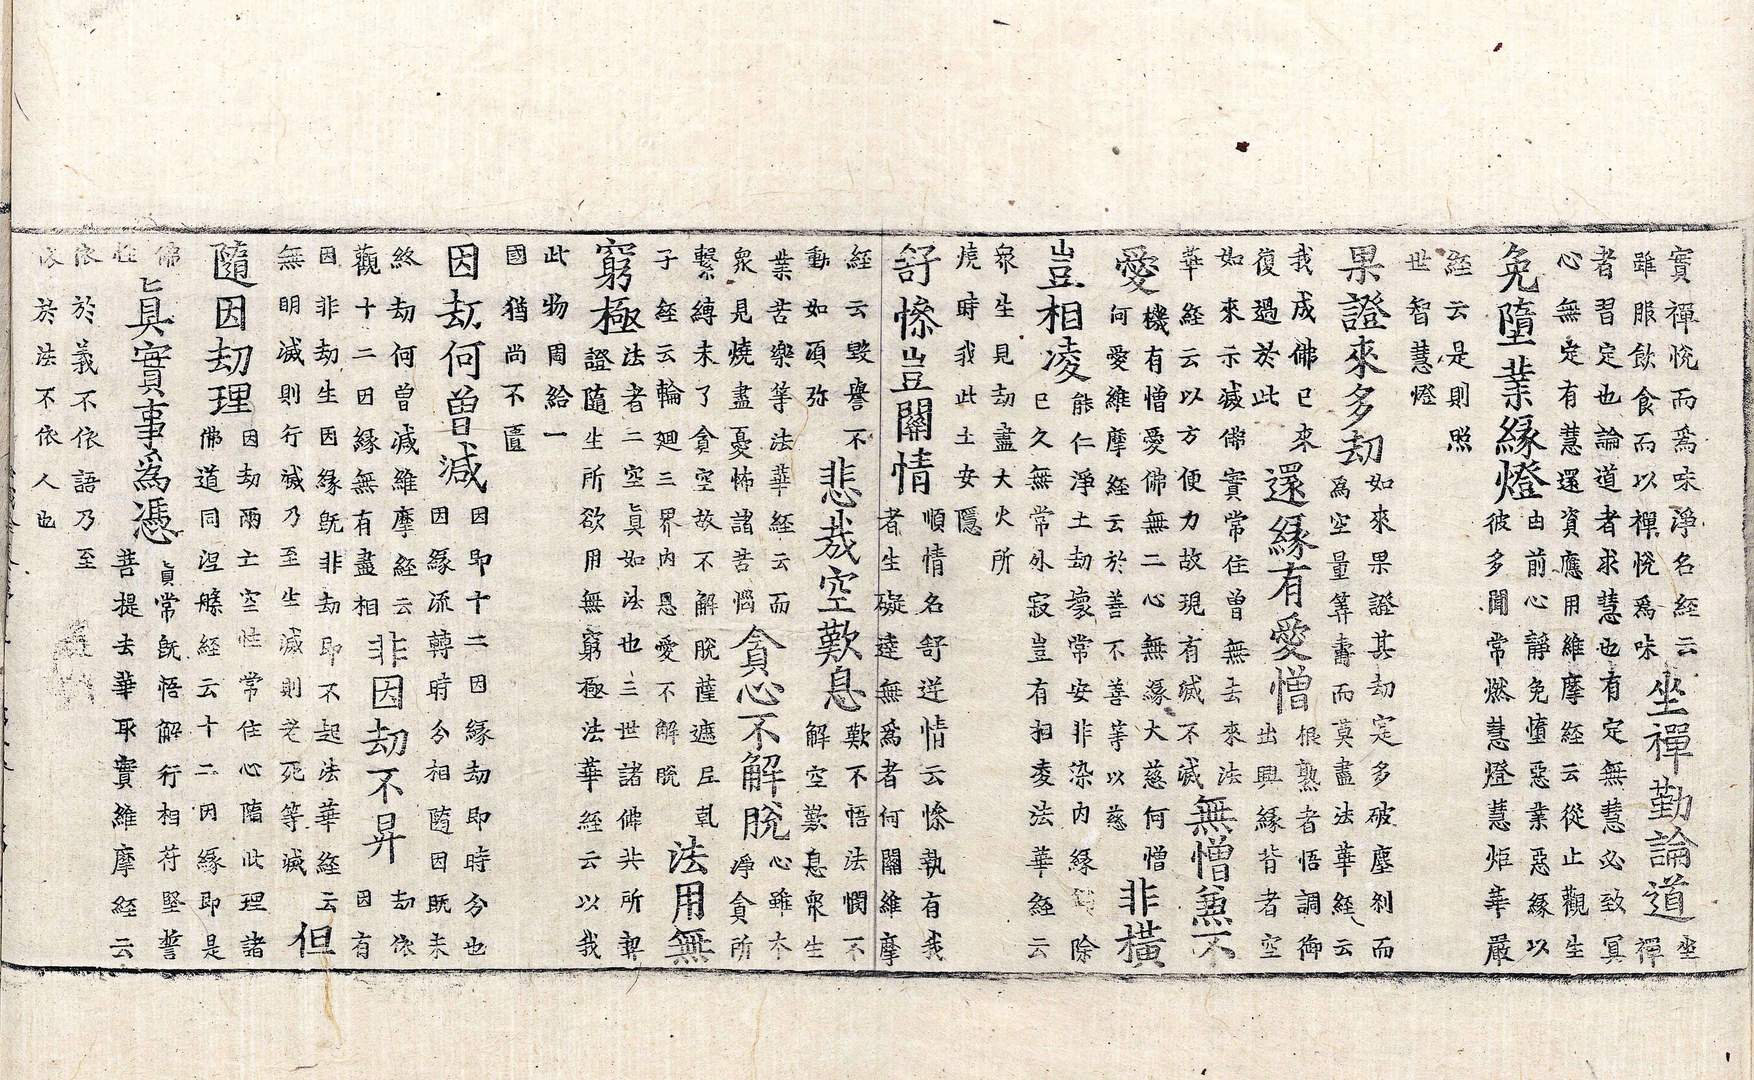 實禪悅而爲味淨名經云
雖服飲食而以禪悅爲味
坐禪勤論道
坐
禪
者習定也論道者求慧也有定無慧必致冥
心無定有慧還資應用維摩經云從止觀生
免墮業緣燈
由前心靜免墮惡業惡緣以
彼多聞常燃慧燈慧炬華嚴
經云是則照
世智慧燈
果證來多劫
如來果證其劫定多破塵刹而
爲空量筭壽而莫盡法華經云
我成佛已來
復過於此
還緣有愛憎
根熟者悟調御
出興緣背者空
如來示滅佛實常住曾無去來法
華經云以方便力故現有滅不滅
無憎兼不
愛
機有憎愛佛無二心無緣大慈何憎
何愛維摩經云於善不善等以慈
非橫
豈相凌
能仁淨土劫壞常安非染內緣除
已久無常外寂豈有相夌法華經云
衆生見劫盡大火所
燒時我此土安隱
舒慘豈關情
順情名舒逆情云慘執有我
者生礙達無爲者何關維摩
經云毀譽不
動如須弥
悲哉空歎息
歎不悟法憫不
解空歎息衆生
業苦樂等法華經云而
衆見燒盡憂怖諸苦惱
貪心不解脫
心雖本
淨貪所
繫縛未了貪空故不解脫薩遮尼乹
子經云輪廻三界內恩愛不解脫
法用無
窮極
法者二空眞如法也三世諸佛共所契
證隨生所欲用無窮極法華經云以我
此物周給一
國猶尚不匱
因劫何曾減
因即十二因緣劫即時分也
因緣流轉時分相隨因旣未
終劫何曾減維摩經云
觀十二因緣無有盡相
非因劫不昇
劫依
因有
因非劫生因緣旣非劫即不起法華經云
無明滅則行滅乃至生滅則老死等滅
但
隨因劫理
因劫兩亡空性常住心隨此理諸
佛道同涅槃經云十二因緣即是
佛
性
眞實事爲憑
眞常旣悟解行相符堅誓
菩提去華取實維摩經云
依於義不依語乃至
依於法不依人也